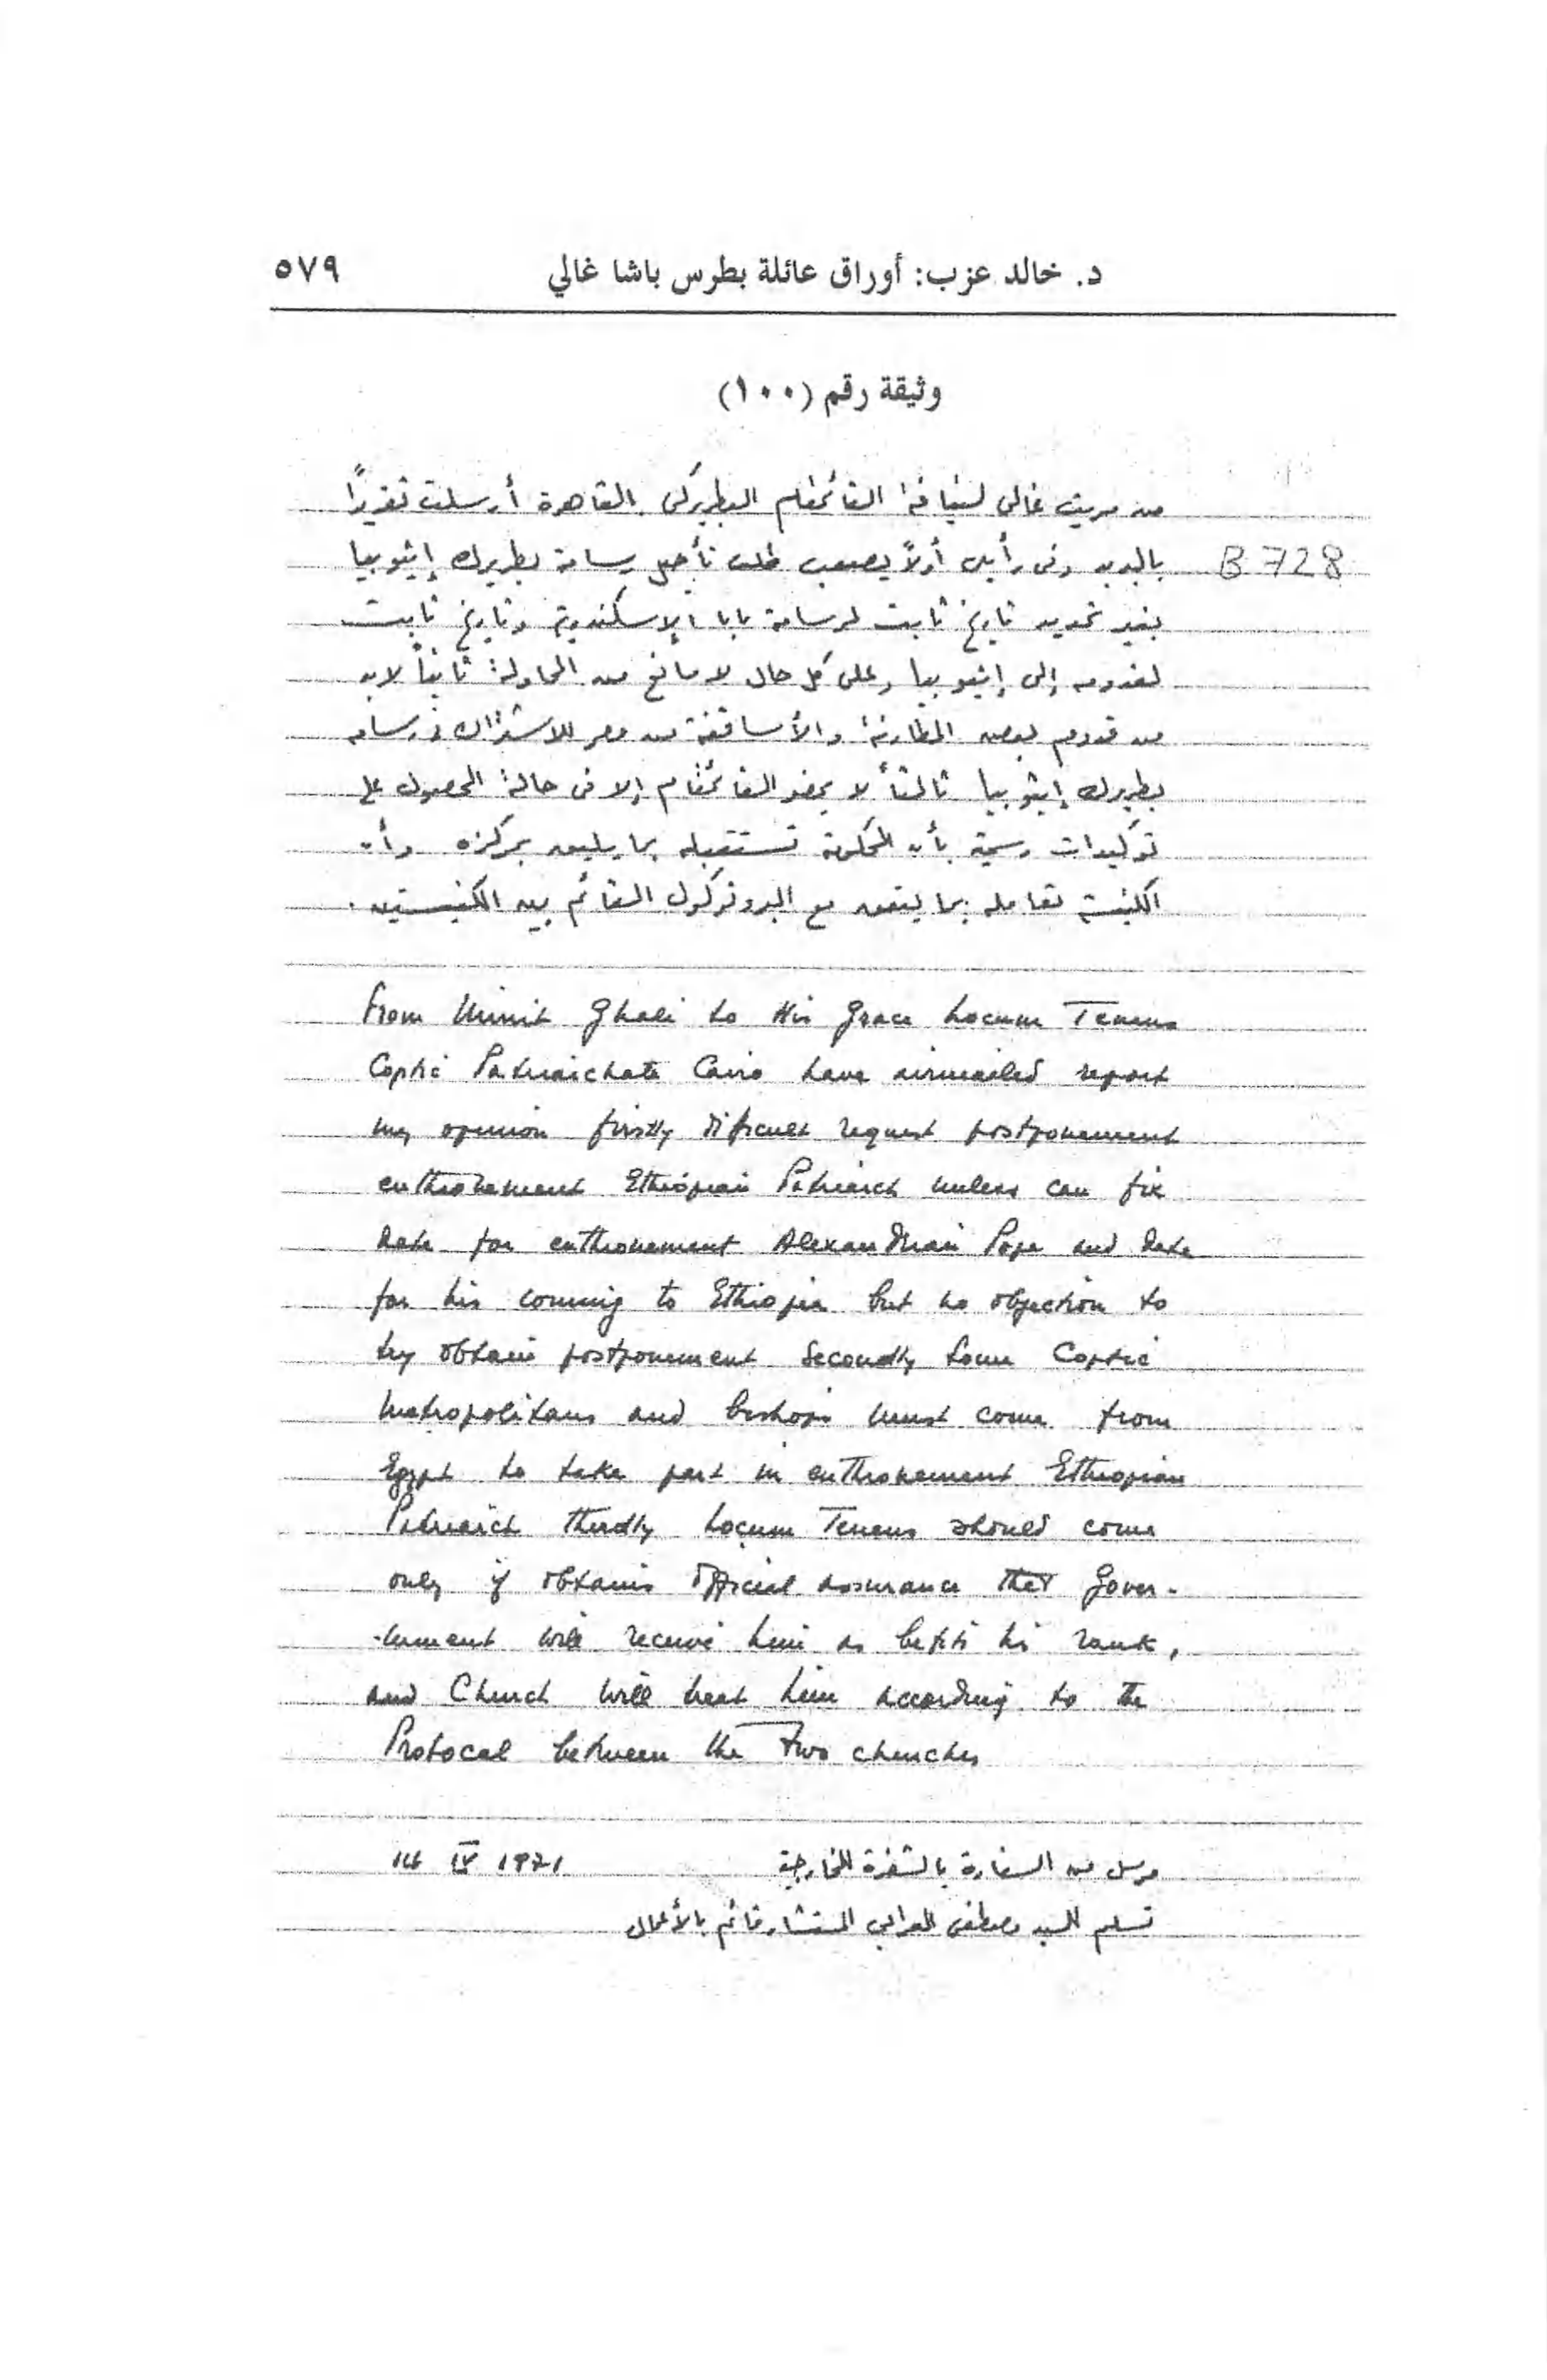 د. خالد عزب: أوراق عائلة بطرس باشا غالي ٥٧٩
وثيقة رقم (١٠٠)
من مريت غالى لنيافة القائمقام البطريركى القاهرة أرسلت تقريرًا
B 728 بالبريد وفى رأيى أولاً يصعب طلب تأجيل رسامة بطريرك إثيوبيا
بغير تحديد تاريخ ثابت لرسامة بابا الإسكندرية وتاريخ ثابت
لقدومه إلى إثيوبيا وعلى كل حال لا مانع من المحاولة: ثانياً لابد
من قدوم بعض المطارنة والأساقفة من مصر للاشتراك فى رسامة
بطريرك إثيوبيا ثالثاً لا يحضر القائمقام إلا فى حالة الحصول على
توكيدات رسمية بأن الحكومة تستقبله بما يليق بمركزه وأن
الكنيسة تعامله بما يتفق مع البروتوكول القائم بين الكنيستين.
From Mirrit Ghali to His Grace Locum Tenens
Coptic Patriarchate Cairo have airmailed report
my opinion firstly difficult request postponement
enthronement Ethiopian Patriarch unless can fix
date for enthronement Alexandrian Pope and date
for his coming to Ethiopia but no objection to
try obtain postponement Secondly some Coptic
metropolitans and bishops must come from
Egypt to take part in enthronement Ethiopian
Patriarch thirdly Locum Tenens should come
only if obtains official assurance that Gover-
-nment will receive him as befits his rank,
and Church will treat him according to the
Protocal between the two churches
مرسل من السفارة بالشفرة للخارجية 14 IV 1971
تسلم السيد مصطفى العرابى المستشار قائم بالأعمال